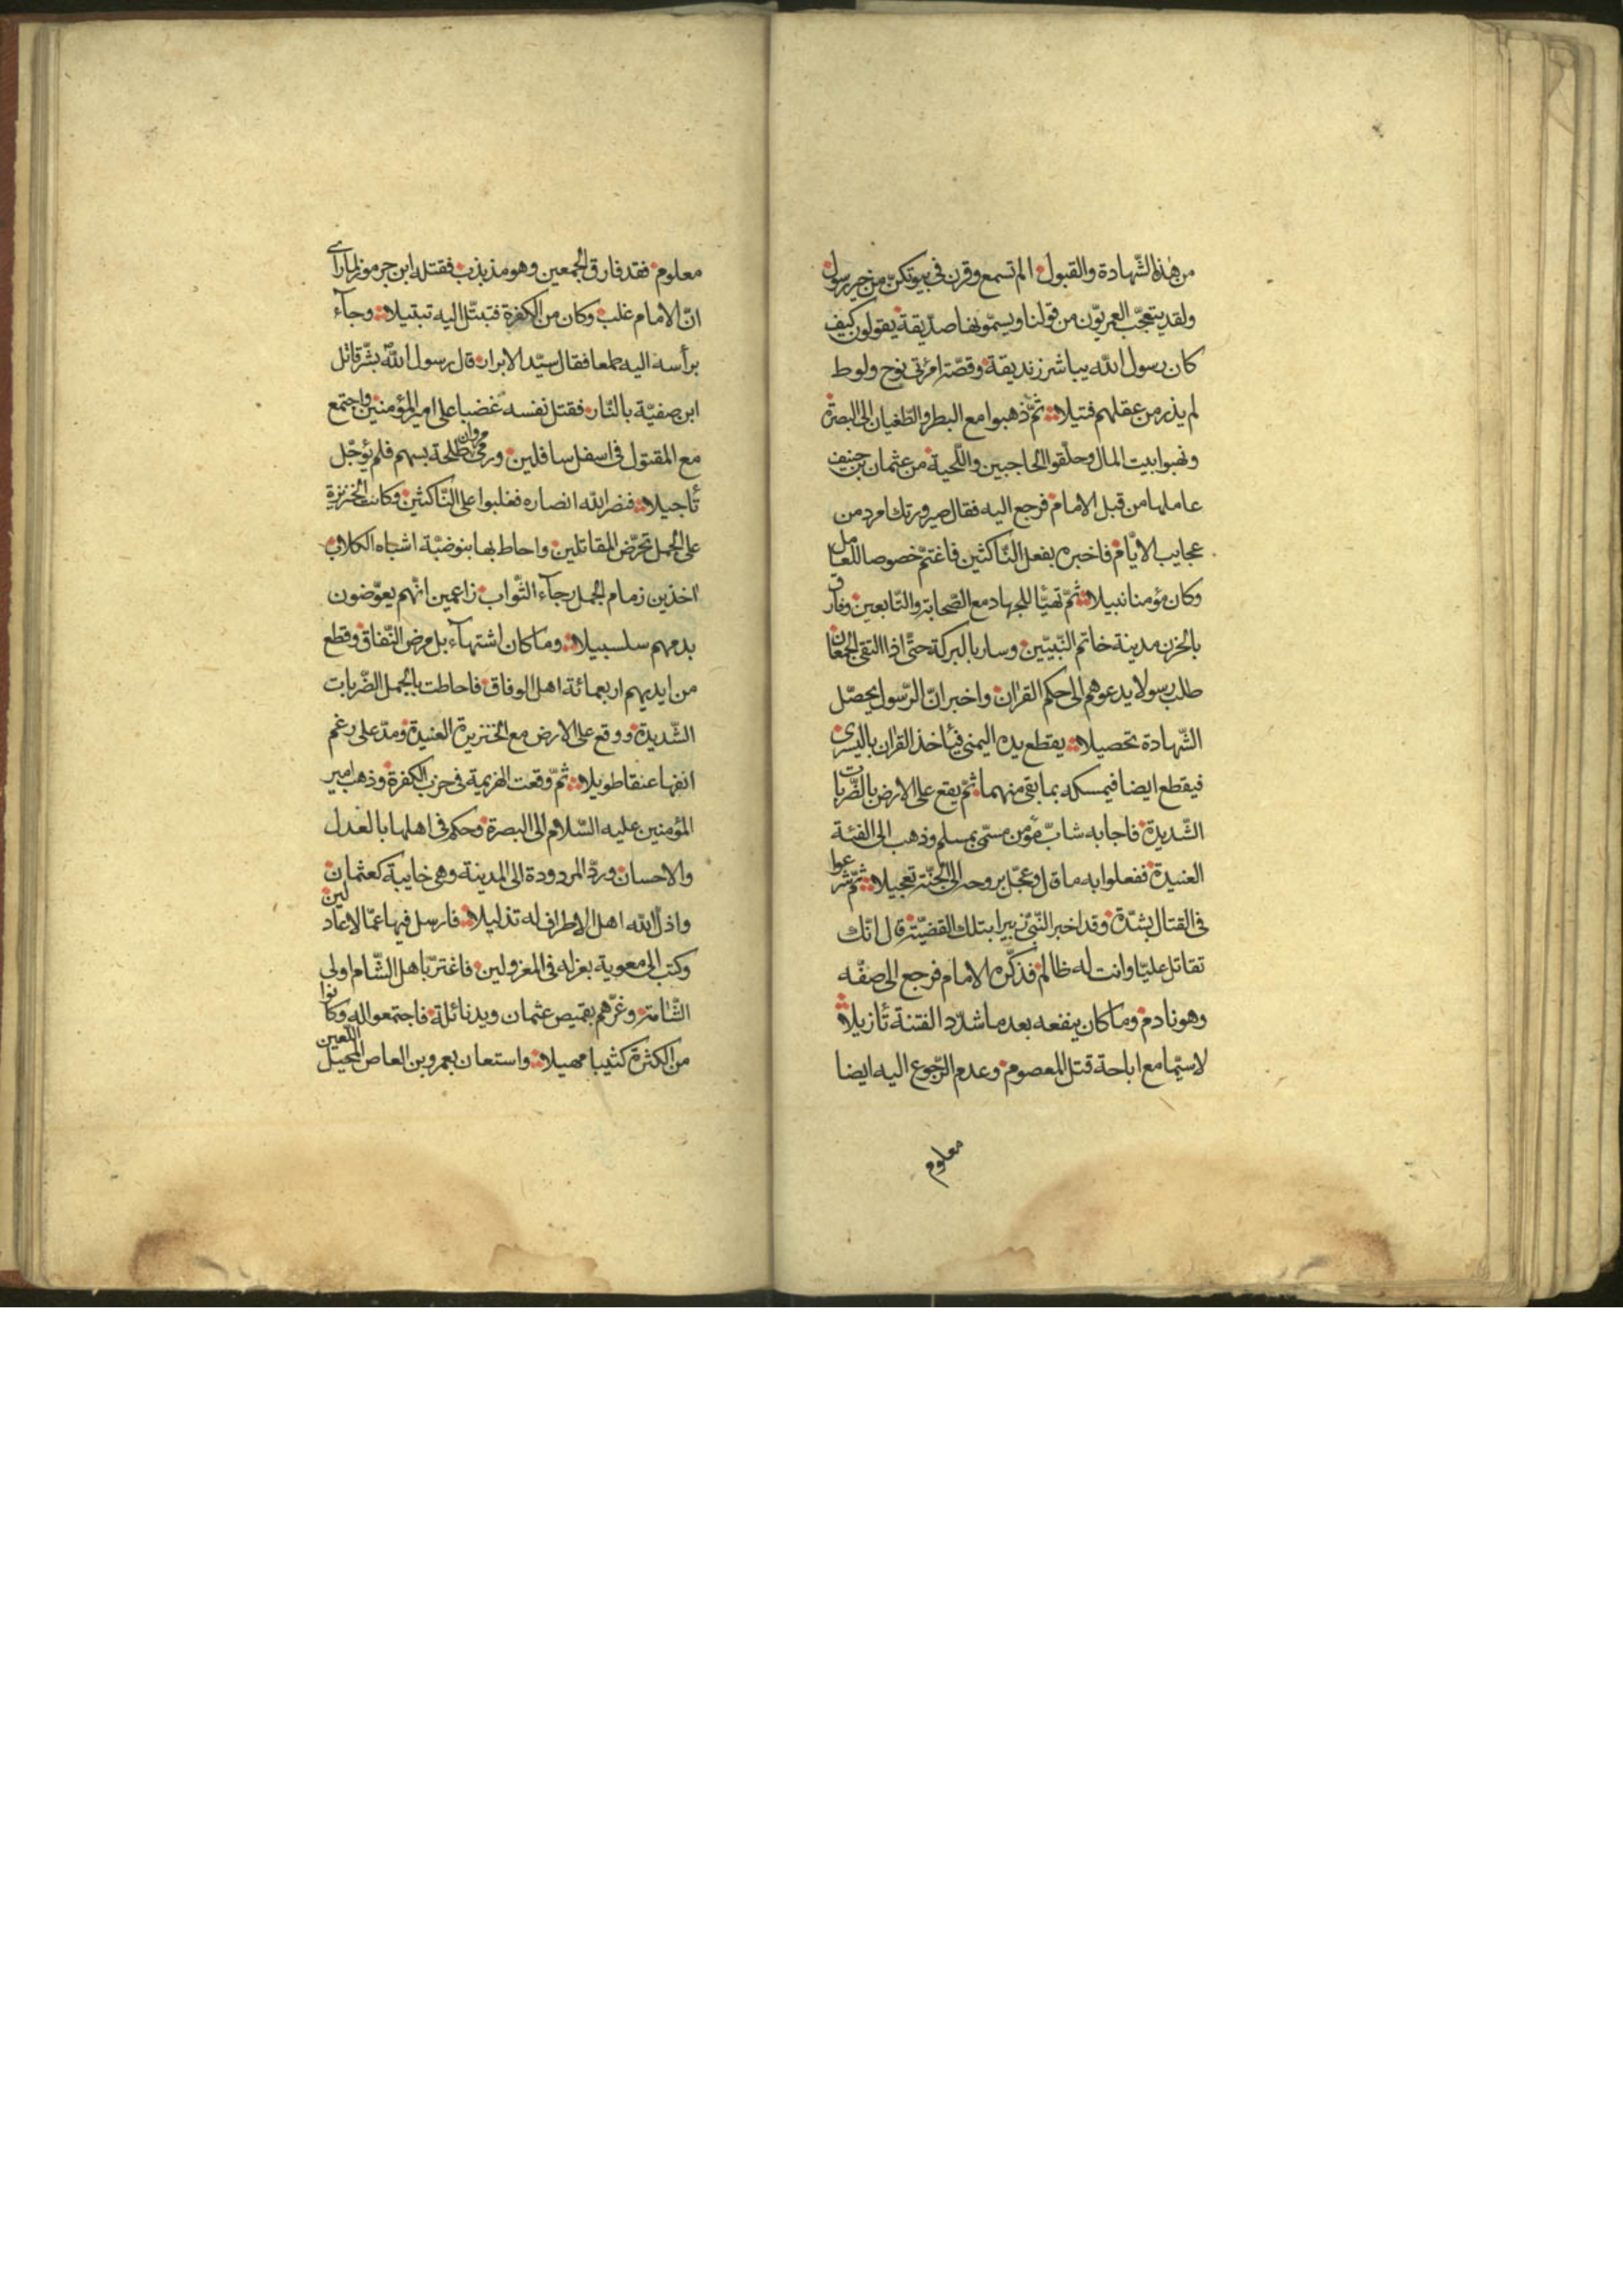 من هذه الشّهادة والقبول الم تسمع وقرن في بيوتكنّ من خير رسول
ولقد يتعجّب العمريّون من قولنا ويسمّونها صدّيقة يقولون كيف
كان رسول الله يباشر زنديقة وقصّة امرئتى نوح ولوط
لم يذر من عقلهم فتيلا ثمّ ذهبوا مع البطر والطّغيان الى البصرة
ونهبوا بيت المال وحلّقوا الحاجبين واللّحية من عثمان بن حنيف
عاملها من قبل الامام فرجع اليه فقال صيرورتك امرد من
عجايب الايّام فاخبره بفعل النّاكثين فاغتمّ خصوصا للعامل
وكان مؤمنا نبيلا ثمّ تهيّا للجهاد مع الصّحابة والتّابعين وفارق
بالحزن مدينة خاتم النّبيّين وسار بالبركة حتّى اذا التقى الجمعان
طلب رسولا يدعوهم الى حكم القران واخبر انّ الرّسول يحصّل
الشّهادة تحصيلا يقطع يده اليمنى فيأخذ القران باليسرى
فيقطع ايضا فيمسكه بما بقى منهما ثمّ يقع على الارض بالضّربات
الشّديدة فاجابه شابّ مؤمن مسمّى بمسلم وذهب الى الفئة
العنيدة ففعلوا به ما قال وعجّل بروحه الى الجنّة تعجيلا ثمّ شرعوا
فى القتال بشدّة وقد اخبر النّبىّ زبيرا بتلك القضيّة قال انّك
تقاتل عليّا وانت له ظالم فذكّره الامام فرجع الى صفّه
وهو نادم وما كان ينفعه بعد ما شدّد الفتنة تأزيلا
لاسيّما مع اباحة قتل المعصوم وعدم الرّجوع اليه ايضا
معلوم
معلوم فقد فارق الجمعين وهو مذبذب فقتله ابن جرموز لما رأى
انّ الامام غلب وكان من الكفرة فتبتّل اليه تبتيلا وجآء
برأسه اليه طمعا فقال سيّد الابرار قال رسول الله بشّر قاتل
ابن صفيّة بالنّار فقتل نفسه غضبا على امير المؤمنين واجتمع
مع المقتول فى اسفل سافلين ورمى مروان طلحة بسهم فلم يؤجّل
تأجيلا فنصر الله انصاره فغلبوا على النّاكثين وكانت الخنزيرة
على الجمل تحرّض المقاتلين واحاط بها بنوضبّة اشباه الكلاب
اخذين زمام الجمل رجآء الثّواب زاعمين انّهم يعوّضون
بدمهم سلسبيلا وما كان اشتهآء بل مرض النّفاق وقطع
من ايديهم اربعمائة اهل الوفاق فاحاطت بالجمل الضّربات
الشّديدة ووقع على الارض مع الخنزيرة العنيدة ومدّ على رغم
انفها عنقا طويلا ثمّ وقعت الهزيمة فى حزب الكفرة وذهب امير
المؤمنين عليه السّلام الى البصرة وحكم فى اهلها بالعدل
والاحسان وردّ المردودة الى المدينة وهى خايبة كعثمان
واذلّ الله اهل الاطراف له تذليلا فارسل فيها عمّالا عادلين
وكتب الى معوية بعزله فى المعزولين فاغترّ باهل الشّام اولى
الشّامة وغرّهم بقميص عثمان ويد نائلة فاجتمعوا له وكانوا
من الكثرة كثيبا مهيلا واستعان بعمرو بن العاص اللّعين المحيل